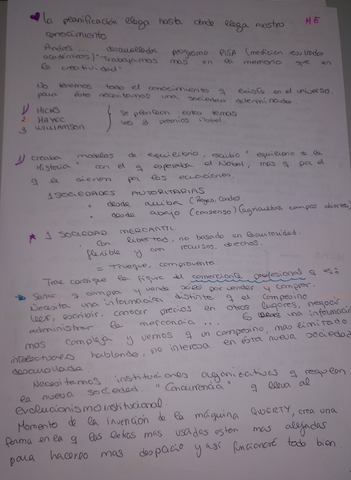 La planificación llega hasta donde llega nuestro HE
conocimiento
Andres desarrollador programa PISA (medicion
academicos) "Trabajamos mas en la memoria que en
la creatividad"
No tenemos todo el conocimiento q existe en el universo,
para esto necesitamos una sociedad determinada
1 HICKS
2 HAYEC se plantean estos temas
3 WILLIAMSON los 3 premios Nobel
1) creaba modelos de equilibrio, escribio "equilibrio e la
Historia" con el q esperaba el Nobel, mas q por el
q le vienen por las ecuaciones.
1 SOCIEDADES AUTORITARIAS
desde arriba (Reyes,
desde abajo (consenso)
1 SOCIEDAD MERCANTIL
Con libertad, no basado en la autoridad.
flexible y con recursos, derechos.
= Trueque, compraventa
Trae consigo la figura del comerciante profesional q es
Señor q compra y vende solo por vender y comprar.
Necesita una información distinta q el campesino
leer, escribir, conocer precios en otros lugares, negociar
administrar la mercancia... una información
mas compleja y vemos q un campesino, mas limitado
intelectualmente hablando, no interesa en esta nueva sociedad
desarrollada
Necesitamos instituciones q respeten
la nueva sociedad. "Concurrencia" q lleva al
evolucionismo institucional.
Momento de la Invención de la máquina QWERTY, crea una
forma en la q las letras mas usadas esten mas alejadas
para hacerlo mas despacio y así funcionará todo bien